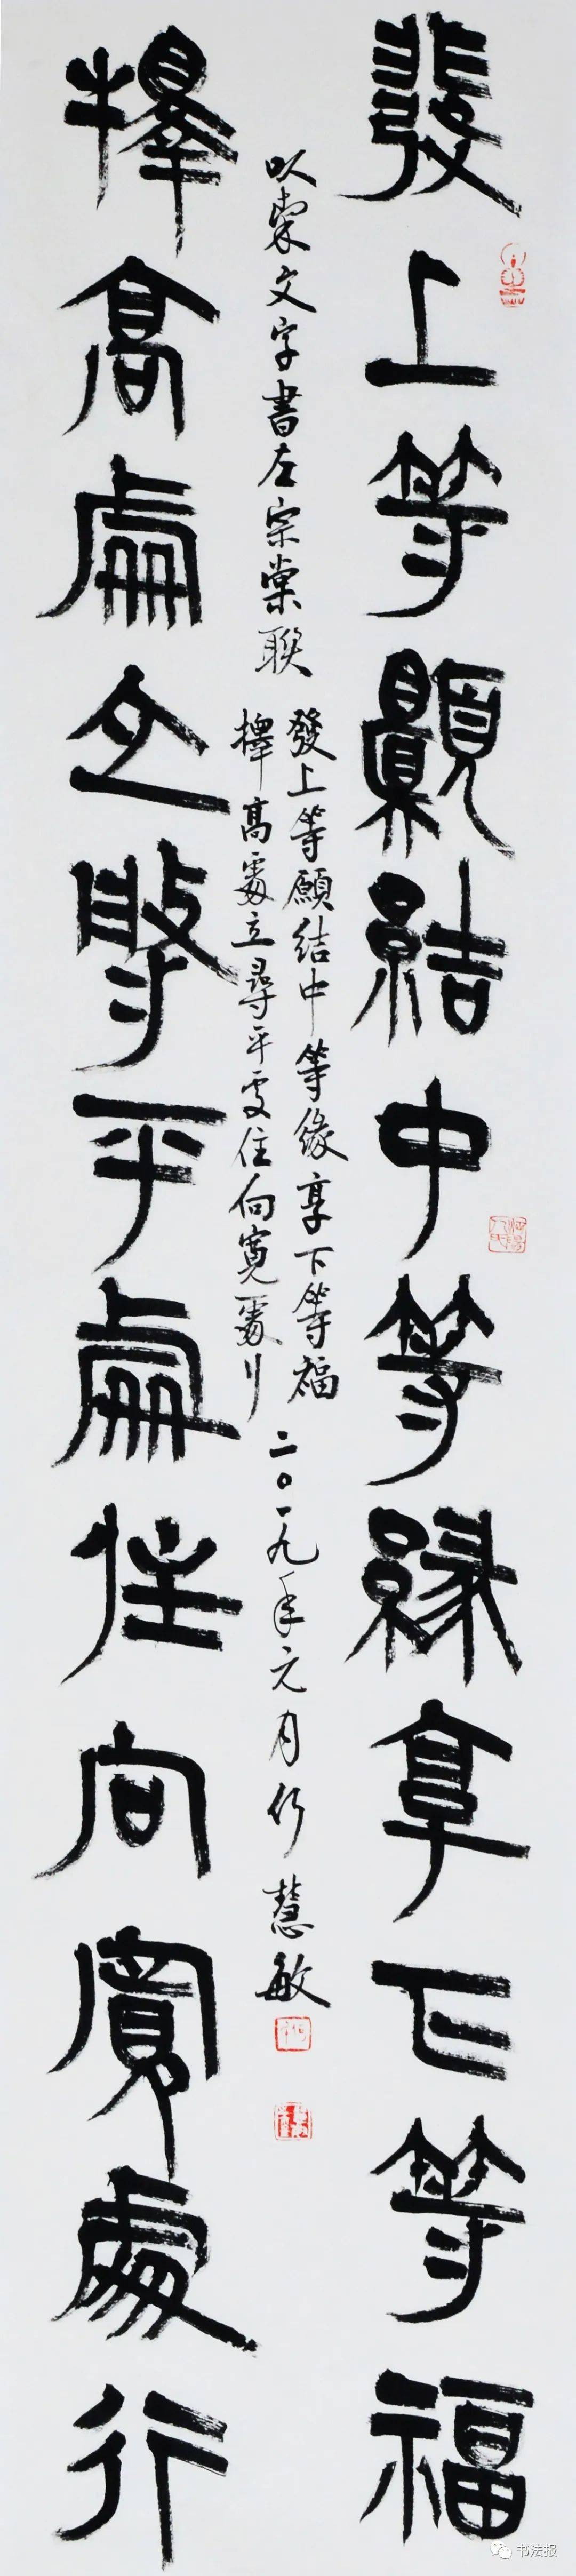 發上等願結中等緣享下等福
擇高處立尋平處住向寬處行
以文字書左宗棠聯
發上等願結中等緣享下等福
擇高處立尋平處住向寬處行
二〇一九年元月 慧敏
书法报